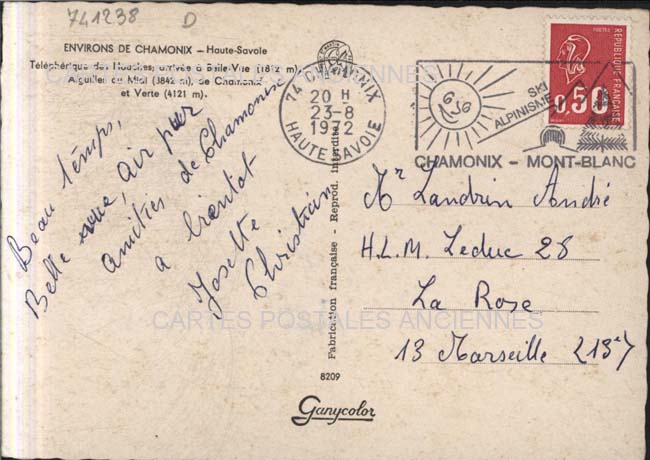 741238 D
ENVIRONS DE CHAMONIX — Haute-Savoie
Téléphérique des Houches; arrivée à Belle-Vue (1812 m)
Aiguilles du Midi (3842 m), de Chamonix
et Verte (4121 m).
Beau temps,
Belle vue, air pur
amitiés de Chamonix
a bientôt
Josette
Christian
74 CHAMONIX
20 H
23-8
1972
HAUTE-SAVOIE
SKI
ALPINISME
CHAMONIX - MONT-BLANC
POSTES
0,50
REPUBLIQUE FRANÇAISE
Mr Landrin André
H.L.M. Leduc 28
La Rose
13 Marseille (13e)
Fabrication française - Reprod. interdite
8209
Ganycolor
CARTES POSTALES ANCIENNES
CARTES POSTALES ANCIENNES